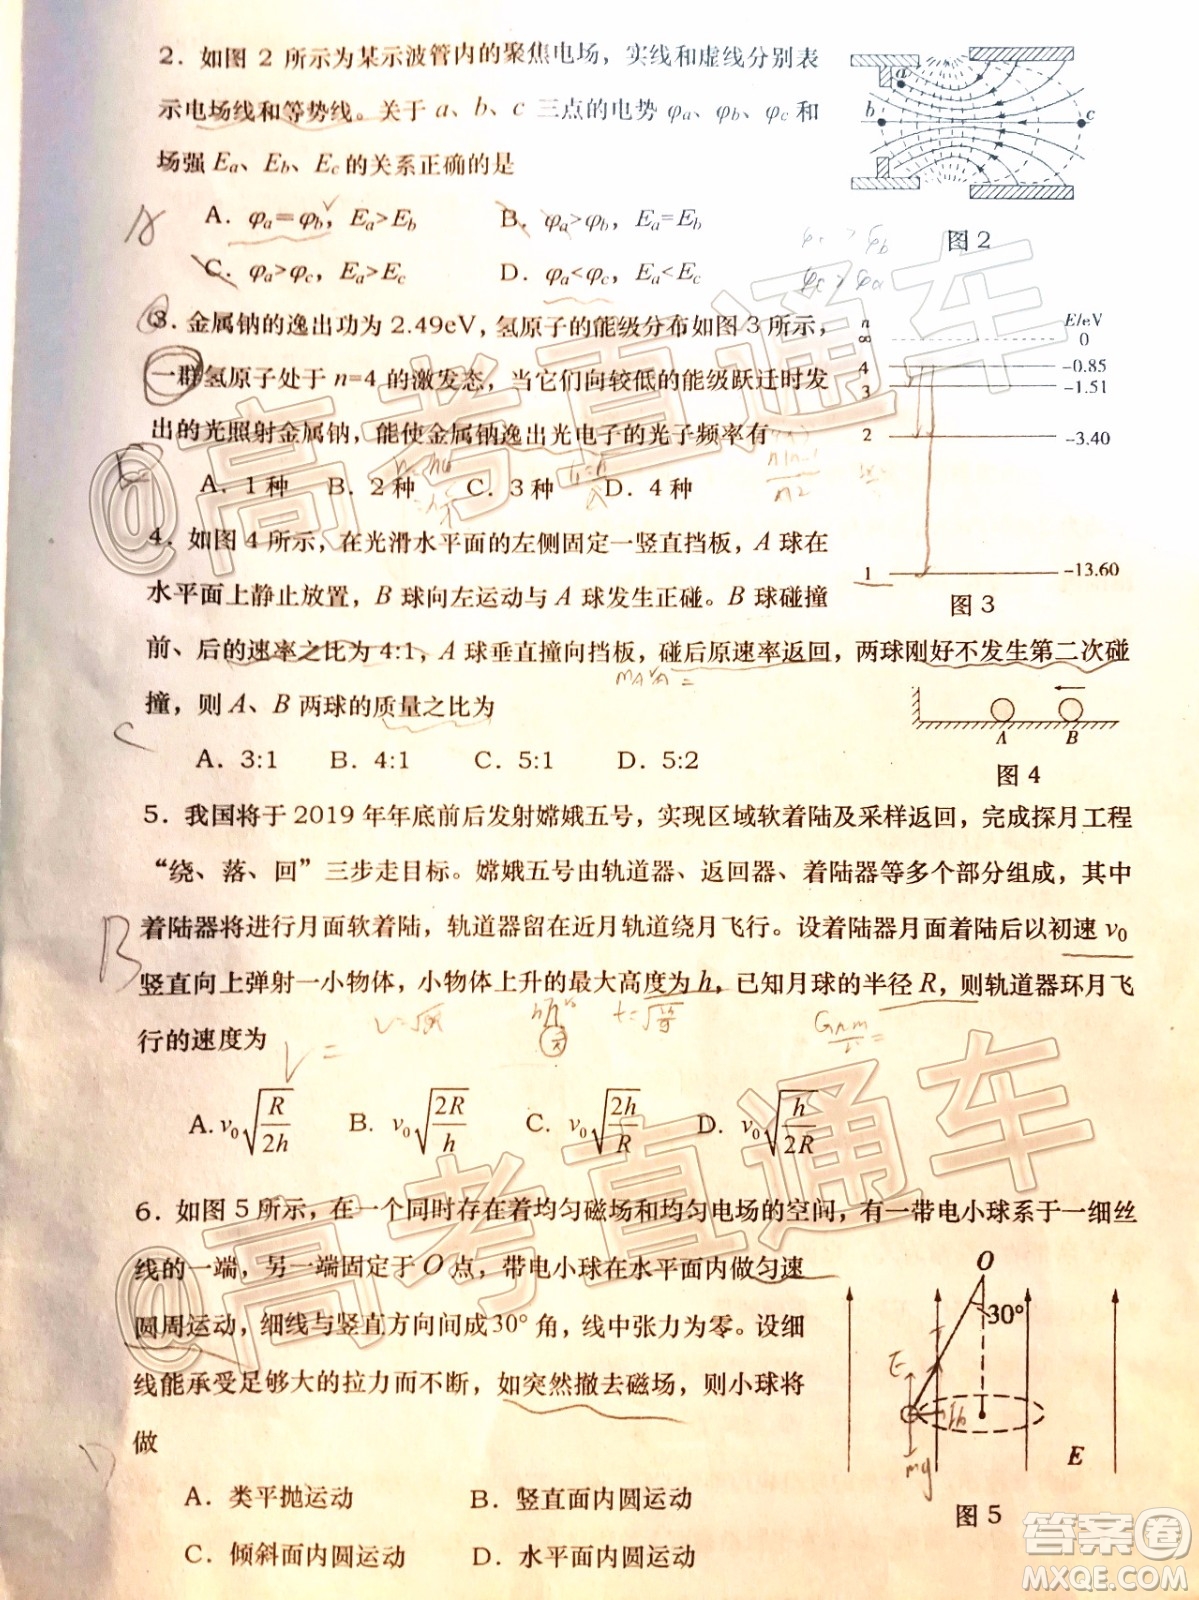 2．如图 2 所示为某示波管内的聚焦电场，实线和虚线分别表
示电场线和等势线。关于 a、b、c 三点的电势 φa、φb、φc 和
场强 Ea、Eb、Ec 的关系正确的是
A．φa=φb，Ea>Eb B．φa>φb，Ea=Eb
C．φa>φc，Ea>Ec D．φa<φc，Ea<Ec
a
b
c
图 2
A
φc > φb
φc > φa
3．金属钠的逸出功为 2.49eV，氢原子的能级分布如图 3 所示，
一群氢原子处于 n=4 的激发态，当它们向较低的能级跃迁时发
出的光照射金属钠，能使金属钠逸出光电子的光子频率有
A．1 种 B．2 种 C．3 种 D．4 种
n E/eV
∞ 0
4 -0.85
3 -1.51
2 -3.40
1 -13.60
图 3
4．如图 4 所示，在光滑水平面的左侧固定一竖直挡板，A 球在
水平面上静止放置，B 球向左运动与 A 球发生正碰。B 球碰撞
前、后的速率之比为 4:1，A 球垂直撞向挡板，碰后原速率返回，两球刚好不发生第二次碰
撞，则 A、B 两球的质量之比为
A．3:1 B．4:1 C．5:1 D．5:2
A B
图 4
C
5．我国将于 2019 年年底前后发射嫦娥五号，实现区域软着陆及采样返回，完成探月工程
“绕、落、回”三步走目标。嫦娥五号由轨道器、返回器、着陆器等多个部分组成，其中
着陆器将进行月面软着陆，轨道器留在近月轨道绕月飞行。设着陆器月面着陆后以初速 v0
竖直向上弹射一小物体，小物体上升的最大高度为 h，已知月球的半径 R，则轨道器环月飞
行的速度为
B
A. v0√(R/2h) B. v0√(2R/h) C. v0√(2h/R) D. v0√(h/2R)
6．如图 5 所示，在一个同时存在着均匀磁场和均匀电场的空间，有一带电小球系于一细丝
线的一端，另一端固定于 O 点，带电小球在水平面内做匀速
圆周运动，细线与竖直方向间成30° 角，线中张力为零。设细
线能承受足够大的拉力而不断，如突然撤去磁场，则小球将
做
A．类平抛运动 B．竖直面内圆运动
C．倾斜面内圆运动 D．水平面内圆运动
O
30°
E
mg
图 5
D
@高考直通车
@高考直通车
答案圈
MXQE.COM